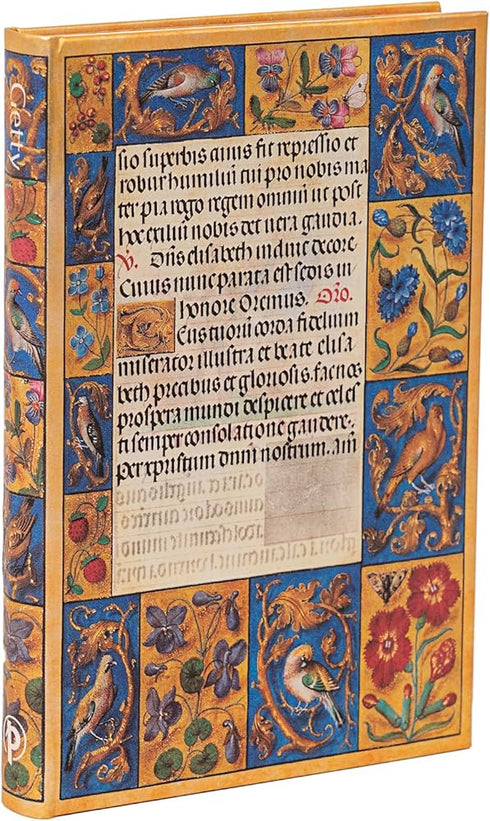 Getty
sio superbis cuius fit repressio et
robur humiliū cui pro nobis ma
ter pia rogo regem ominū ut post
hoc exiliū nobis det uera gaudia.
V. Dn̄s elisabeth decore
Cuius nunc parata est sedis in
honore Oremus. Oro.
Deus tuorū corda fidelium
miserator illustra et beate elisa
beth precibus et gloriosis fac nos
prospera mundi despicere et celes
ti semper consolatione gaudere.
per dn̄m nostrum. am̄